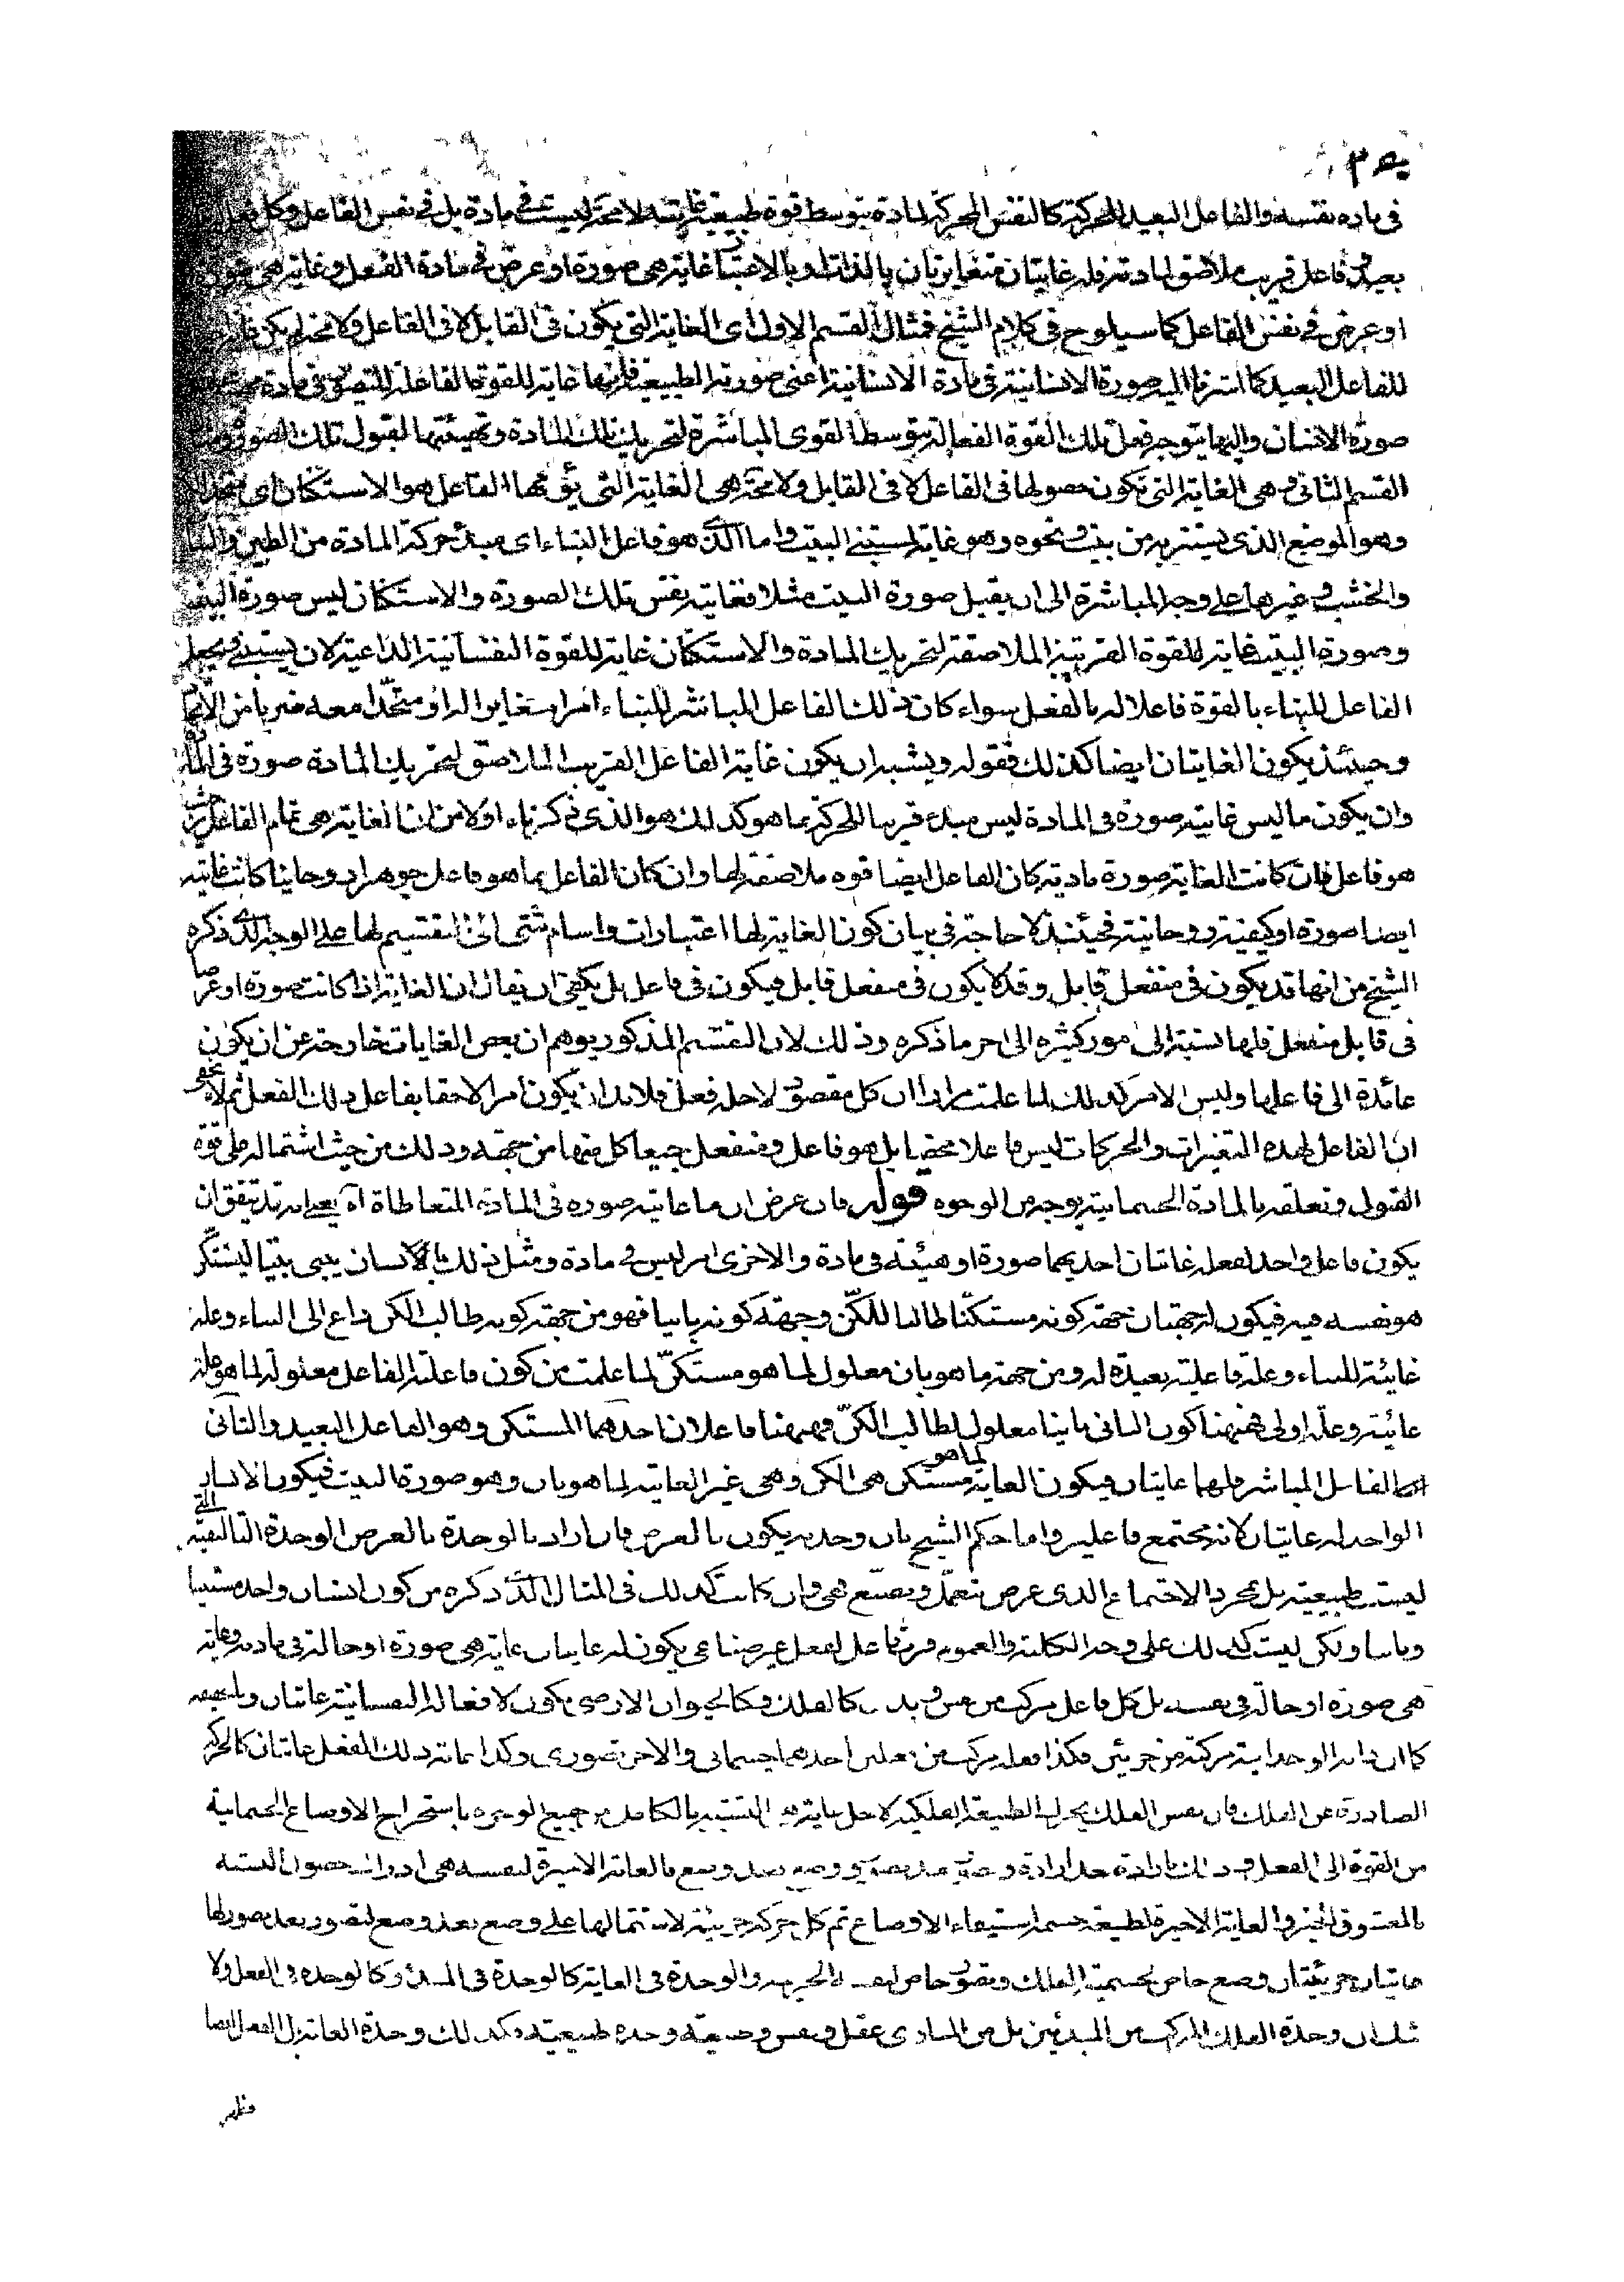 في مادة نفسه والفاعل البعيد للحركة كالنفس المحركة لمادة بتوسط قوة طبيعية غايته لا محة ليست في مادة بل في نفس الفاعل وكل
بعيد فاعل قريب ملاصق لمادته فله غايتان متغايرتان بالذات او بالاعتبار غاية هي صورة او عرض في مادة الفعل وغاية هي
او عرض في نفس الفاعل كما سيلوح في كلام الشيخ فمثال القسم الاول اى الغاية التى يكون في القابل لا في الفاعل ولا محة لم يكن
للفاعل البعيد كما اشرنا اليه صورة الانسانية في مادة الانسانية اعنى صورته الطبيعية فانها غاية للقوة الفاعلة للتصوير في مادة
صورة الانسان واليها يتوجه فعل تلك القوة الفعالة بتوسط القوى المباشرة لتحريك تلك المادة وتهيئتها لقبول تلك الصورة
القسم الثانى وهى الغاية التى تكون حصولها في الفاعل لا في القابل ولا محة هى الغاية التى يؤمها الفاعل هو الاستكنان اى
وهو الموضع الذى يستتر به من بيت ونحوه وهو غاية لمستبنى البيت واما الذى هو فاعل البناء اى مبدء حركة المادة من الطين
والخشب وغيرها على وجه المباشرة الى ان يقبل صورة البيت مثلا فغايته نفس تلك الصورة والاستكنان ليس صورة البيت
وصورة البيت غاية للقوة القريبة الملاصقة لتحريك المادة والاستكنان غاية للقوة النفسانية الداعية لان يستبنى ويجعل
الفاعل للبناء بالقوة فاعلا له بالفعل سواء كان ذلك الفاعل المباشر للبناء امرا مغايرا له او متحدا معه ضربا من
وحينئذ يكون الغايتان ايضا كذلك فقوله ويشبه ان يكون غاية الفاعل القريب الملاصق لتحريك المادة صورة في
وان يكون ما ليس غايته صورة في المادة ليس مبدء قريبا للحركة بما هو كذلك هو الذى ذكرناه اولا من ان الغاية هى تمام الفاعل
هو فاعل فان كانت الغاية صورة مادية كان الفاعل ايضا قوة ملاصقة لها وان كان الفاعل بما هو فاعل جوهرا روحانيا كانت غايته
ايضا صورة او كيفية روحانية فحينئذ لا حاجة في بيان كون الغاية لها اعتبارات واسام شتى الى التقسيم لها على الوجه الذى ذكره
الشيخ من انها قد يكون في منفعل قابل وقد لا يكون في منفعل قابل فيكون في فاعل بل يكفى ان يقال ان الغاية اذا كانت صورة او عرضا
في قابل منفعل فلها نسبة الى امور كثيرة الى اخر ما ذكره وذلك لان التقسيم المذكور يوهم ان بعض الغايات خارجة عن ان يكون
عائدة الى فاعلها وليس الامر كذلك لما علمت مرارا ان كل مقصود لاجله فعل فلا بد ان يكون امرا لاحقا بفاعل ذلك الفعل ثم لا يخفى
ان الفاعل لهذه التغيرات والحركات ليس فاعلا محضا بل هو فاعل ومنفعل جميعا كل منهما من جهة وذلك من حيث اشتماله على قوة
القبول وتعلقه بالمادة الجسمانية بوجه من الوجوه قوله فان عرض ان ما غايته صورة في المادة المتعاطاة آه يعنى انه قد يتفق ان
يكون فاعل واحد لفعله غايتان احديهما صورة او هيئة في مادة والاخرى امر ليس في مادة ومثل ذلك بالانسان يبنى بيتا ليستكن
هو نفسه فيه فيكون له جهتان جهة كونه مستكنا طالبا للكن وجهة كونه بانيا فهو من جهة كونه طالب الكن داع الى البناء وعلة
غائية للبناء وعلة فاعلية بعيدة له ومن جهة ما هو بان معلول لما هو مستكن لما علمت من كون فاعلية الفاعل معلولة لما هو علة
غائية وعلة اولى فههنا كون البانى بانيا معلول لطالب الكن وههنا فاعلان احدهما المستكن وهو الفاعل البعيد والثانى
الفاعل المباشر فلهما غايتان فيكون الغاية لما هو مستكن هى الكن وهى غير الغاية لما هو بان وهو صورة البيت فيكون الانسان
الواحد له غايتان لانه مجتمع فاعلين واما حكم الشيخ بان وحدته يكون بالعرض فان اراد بالوحدة بالعرض الوحدة التأليفية التى
ليست طبيعية بل بمجرد الاجتماع الذى عرض بتعمل وتصنع فهى وان كانت كذلك في المثال الذى ذكره من كون انسان واحد مستبنيا
وبانيا ولكن ليست كذلك على وجه الكلية والعموم فرب فاعل لفعل غير صناعى يكون له غايتان غاية هى صورة او حالة في مادته وغاية
هى صورة او حالة في نفسه بل كل فاعل مركب من نفس وبدن كالفلك وكالحيوان الارضى يكون لافعاله النفسانية غايتان
كما ان ذاته الوحدانية مركبة من جزئين فكذا فعله مركب من فعلين احدهما جسمانى والاخر تصورى وكذا غاية ذلك الفعل غايتان كالحركة
الصادرة عن الفلك فان نفس الفلك يحرك الطبيعة الفلكية لاجل غاية هى التشبه بالكامل من جميع الوجوه باستخراج الاوضاع الجسمانية
من القوة الى الفعل وذلك بارادة بعد ارادة وتصور بعد تصور ووضع بعد وضع فالغاية الاخيرة لنفسه هى ادراك حصول التشبه
بالمعشوق الخير والغاية الاخيرة لطبيعة جسمه استيفاء الاوضاع ثم كل حركة جزئية لاشتمالها على وضع بعد وضع لتصور بعد تصور لها
غايتان جزئيتان وضع خاص لجسمية الفلك وتصور خاص لنفسه الجزئية والوحدة في الغاية كالوحدة في المبدء وكالوحدة في الفعل ولا
شك ان وحدة الفلك المركب من المبدئين بل من المبادى عقل ونفس وطبيعة وحدة طبيعية وكذلك وحدة الغاية بل الفعل ايضا
فظهر